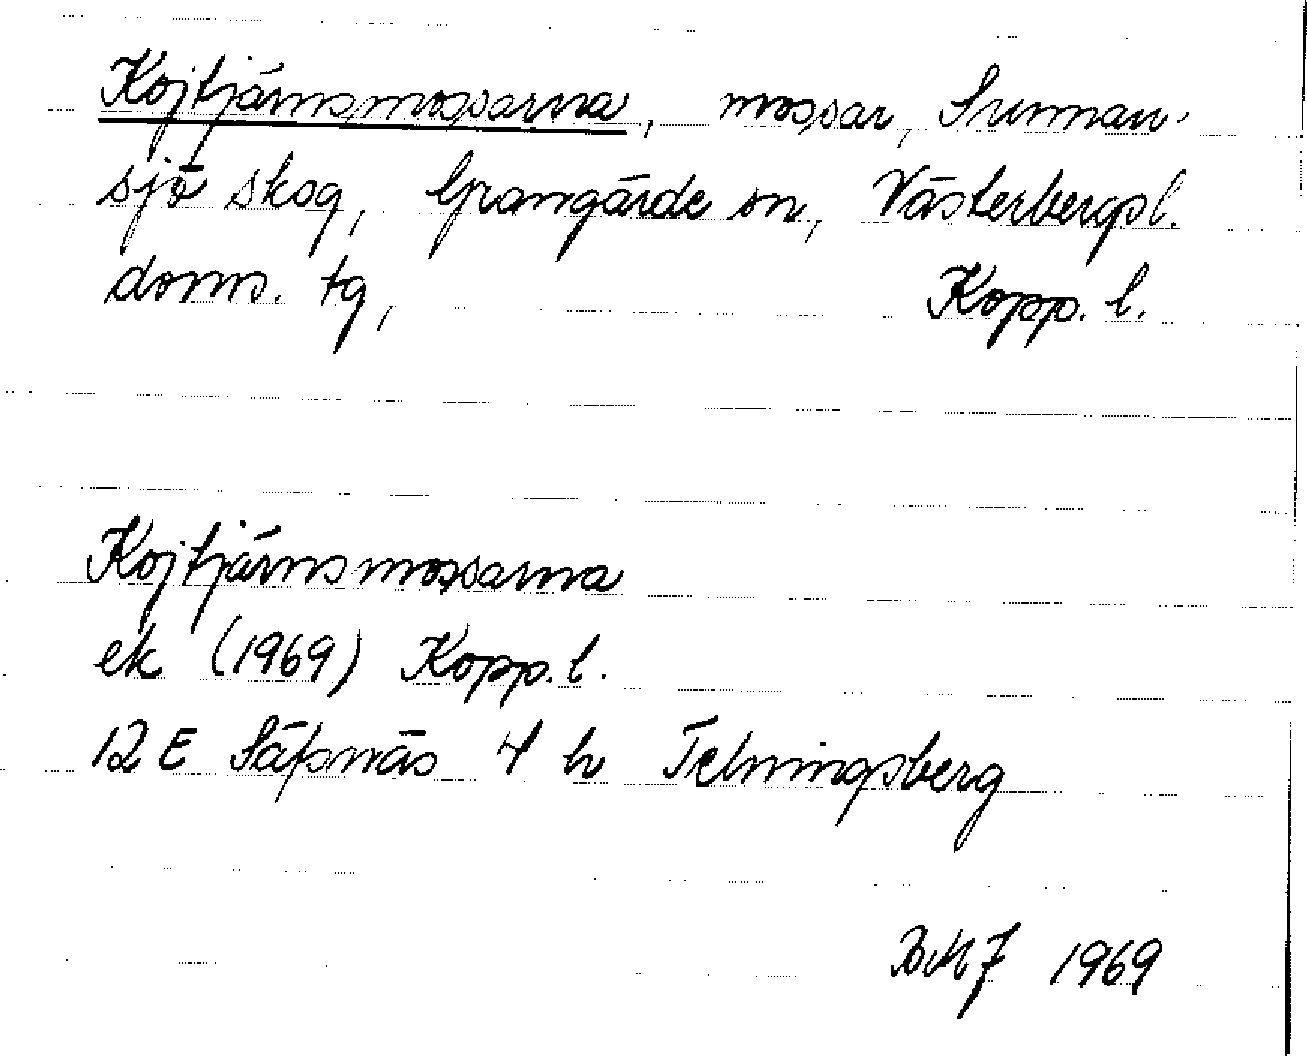 Kojtjärnsmossarna, mossar, Sunnan-
sjö skog, Grangärde sn, Västerbergsl.
doms. tg, Kopp. l.
Kojtjärnsmossarna
ek (1969) Kopp. l.
12 E Säfsnäs 4 h Telningsberg
1969